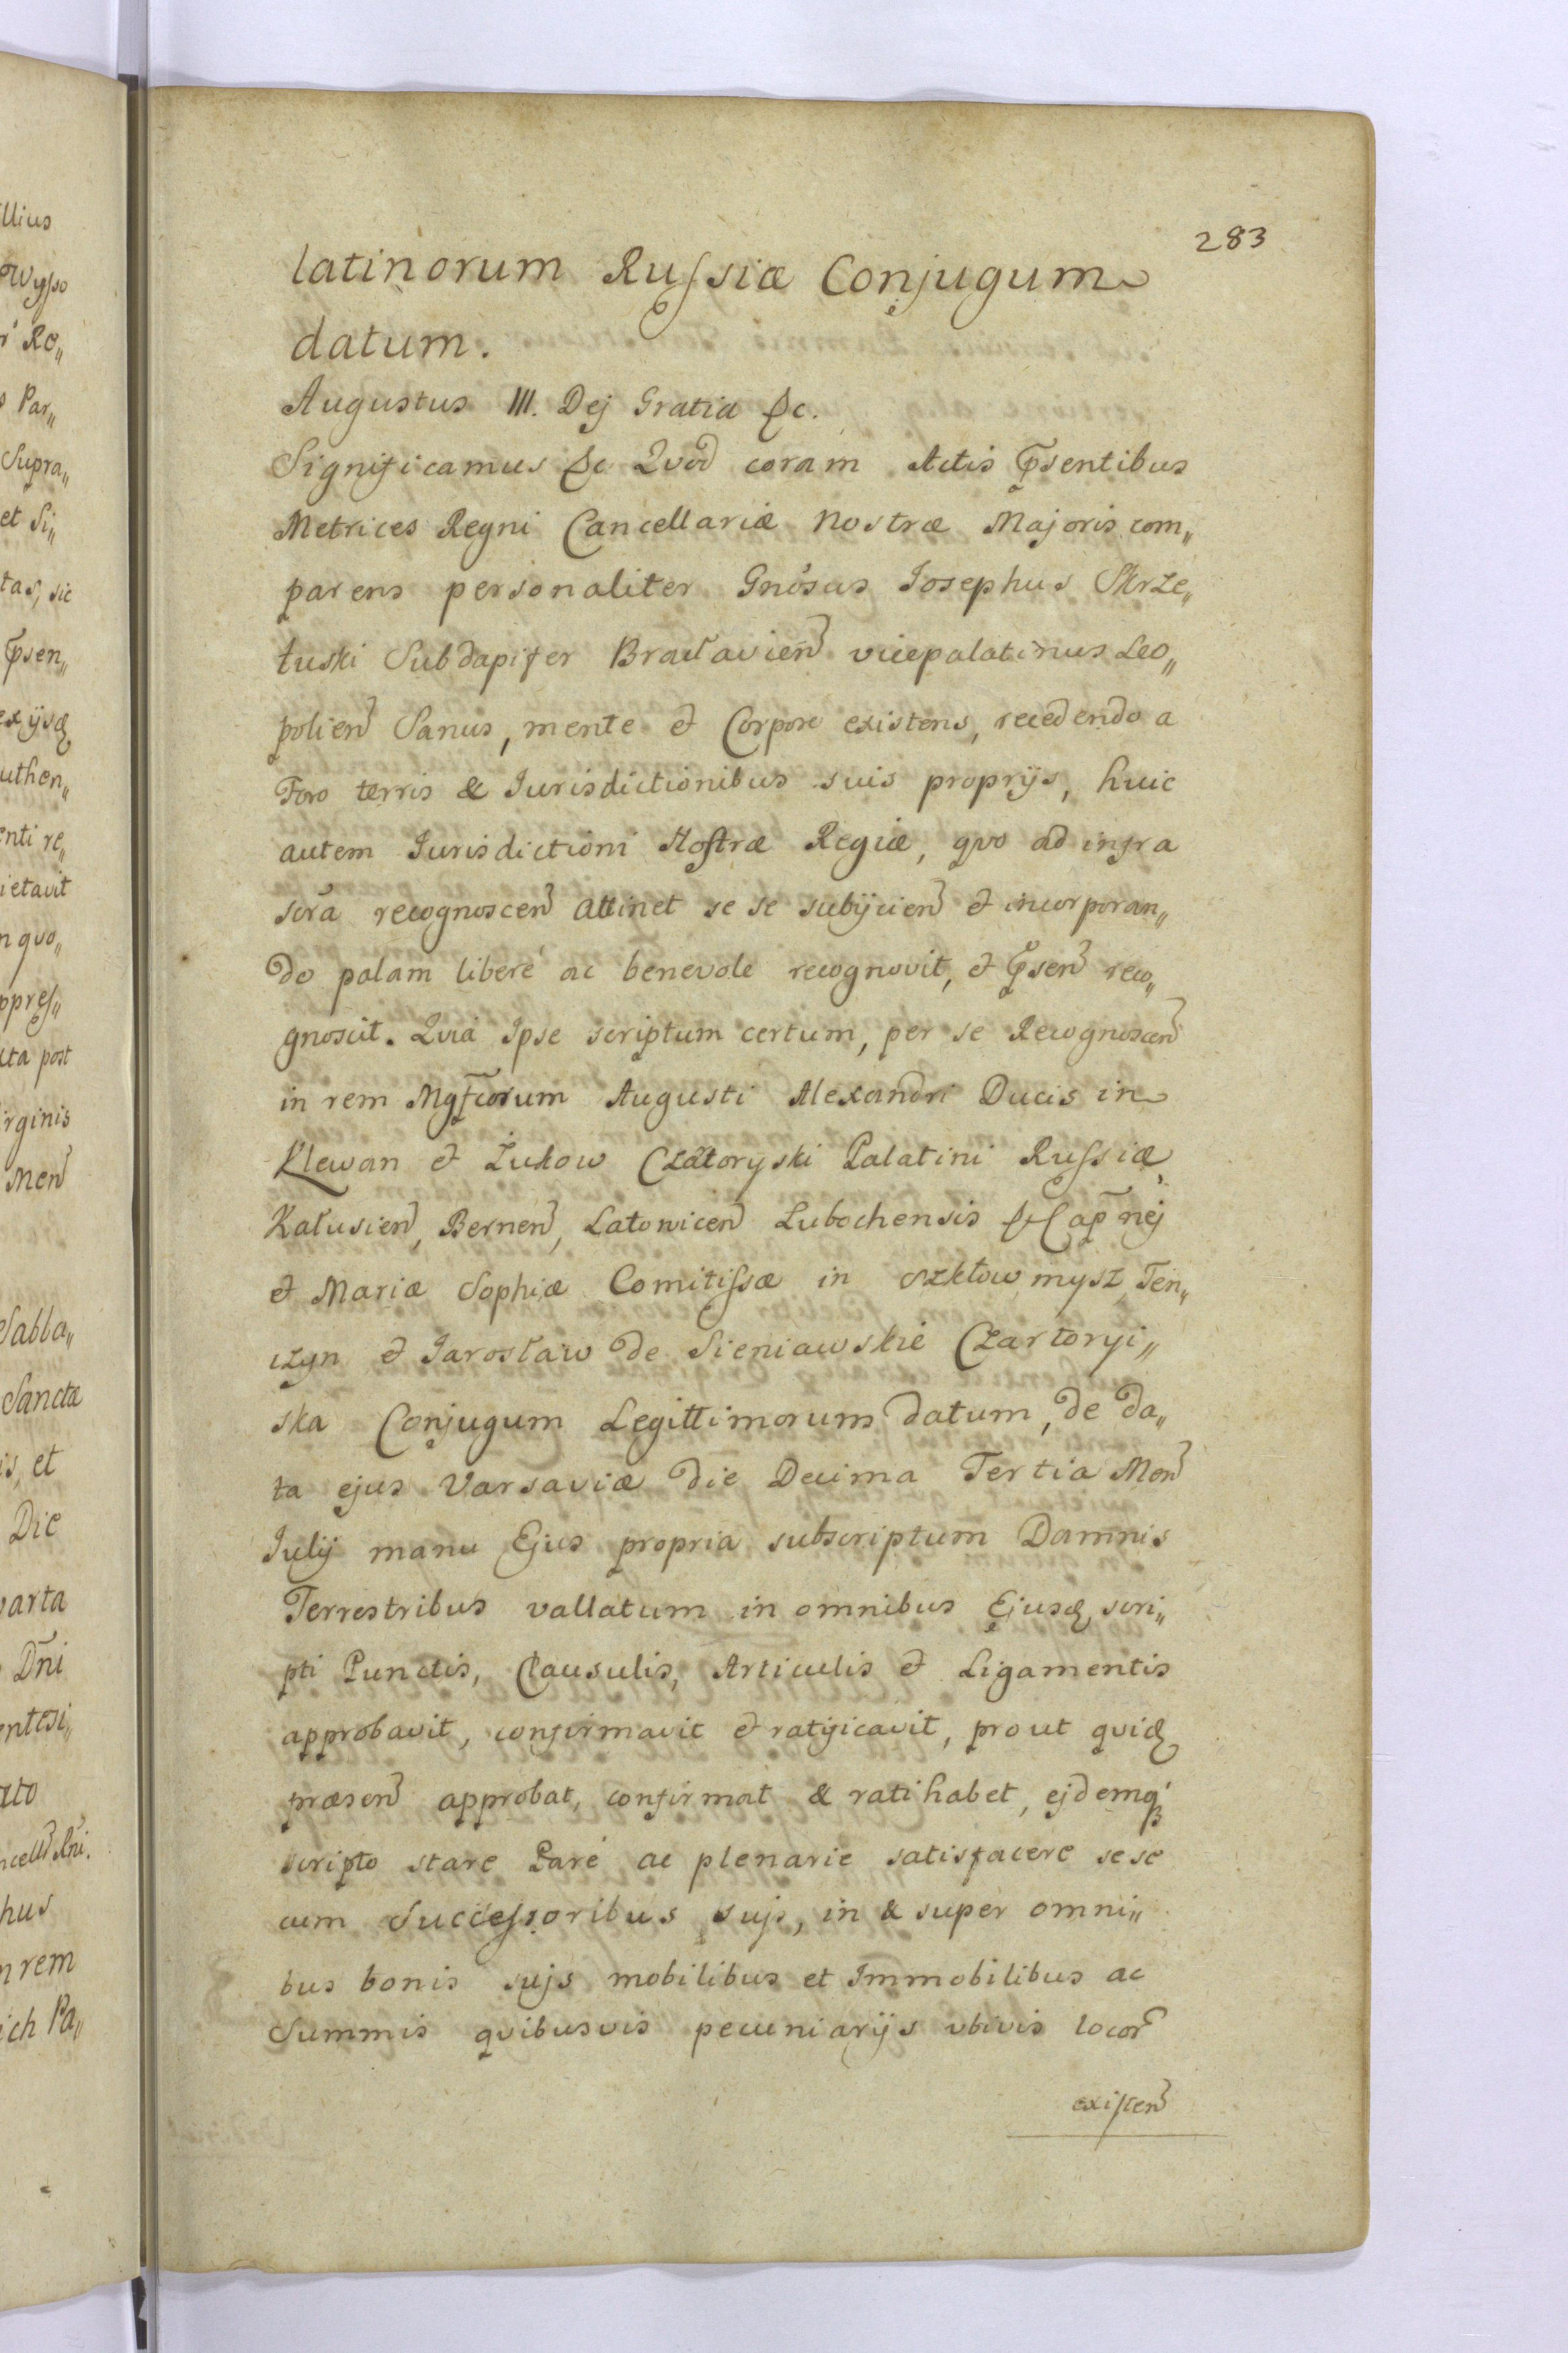 283
latinorum Rusſiæ Conjugum
datum.
Augustus III. Dej Gratia &c.
Significamus &c Qvod coram Actis Pſentibus
Metrices Regni Cancellariæ Nostræ Majoris com„
parens personaliter Gnosus Iosephus Skrze„
tuski Subdapifer Bracłavien vicepalatinus Leo„
polien Sanus, mente et Corpore existens, recedendo a
Foro terris & Iurisdictionibus suis proprijs, huic
autem Iurisdictioni Noſtræ Regiæ, qvo ad infra
scra recognoscen attinet se se subijcien et incorporan„
do palam liberé ac benevole recognovit, et Pſen reco„
gnoscit. Qvia Ipse scriptum certum, per se Recognoscen
in rem Mgfcorum Augusti Alexandri Ducis in
Klewan et Żukow Czartoryski Palatini Rusſiæ,
Kałusien, Bernen, Latowicen Lubochensis &c Capnej
et Mariæ Sophiæ Comitiſsæ in Szkłow, mysz, Ten„
czyn et Jarosław de Sieniawskie Czartoryi„
ska Conjugum Legittimorum datum, de da„
ta ejus Varsaviæ die Decima Tertia Men
Iulij manu Ejus propria subscriptum Damnis
Terrestribus vallatum in omnibus Ejusd, scri„
pti Punctis, Clausulis, Articulis et Ligamentis
approbavit, confirmavit et ratificavit, prout qvid
præsen approbat, confirmat & ratihabet, ejdemq
scripto stare Paré ac plenarie satisfacere sese
cum Succeſsoribus sujs, in & super omni„
bus bonis sujs mobilibus et Immobilibus ac
Summis qvibusvis pecuniarijs vbivis locor
exiſten
llius
owyſso
Ro„
Par„
Supra„
et Si„
tas, sic
Pſen„
ex ijsd
uthen„
enti re„
ietavit
n qvo„
ppreſ„
cta post
irginis
Men
Sabba„
Sanctæ
is, et
Die
varta
Dni
entesi„
ato
hus
n rem
ich Pa„